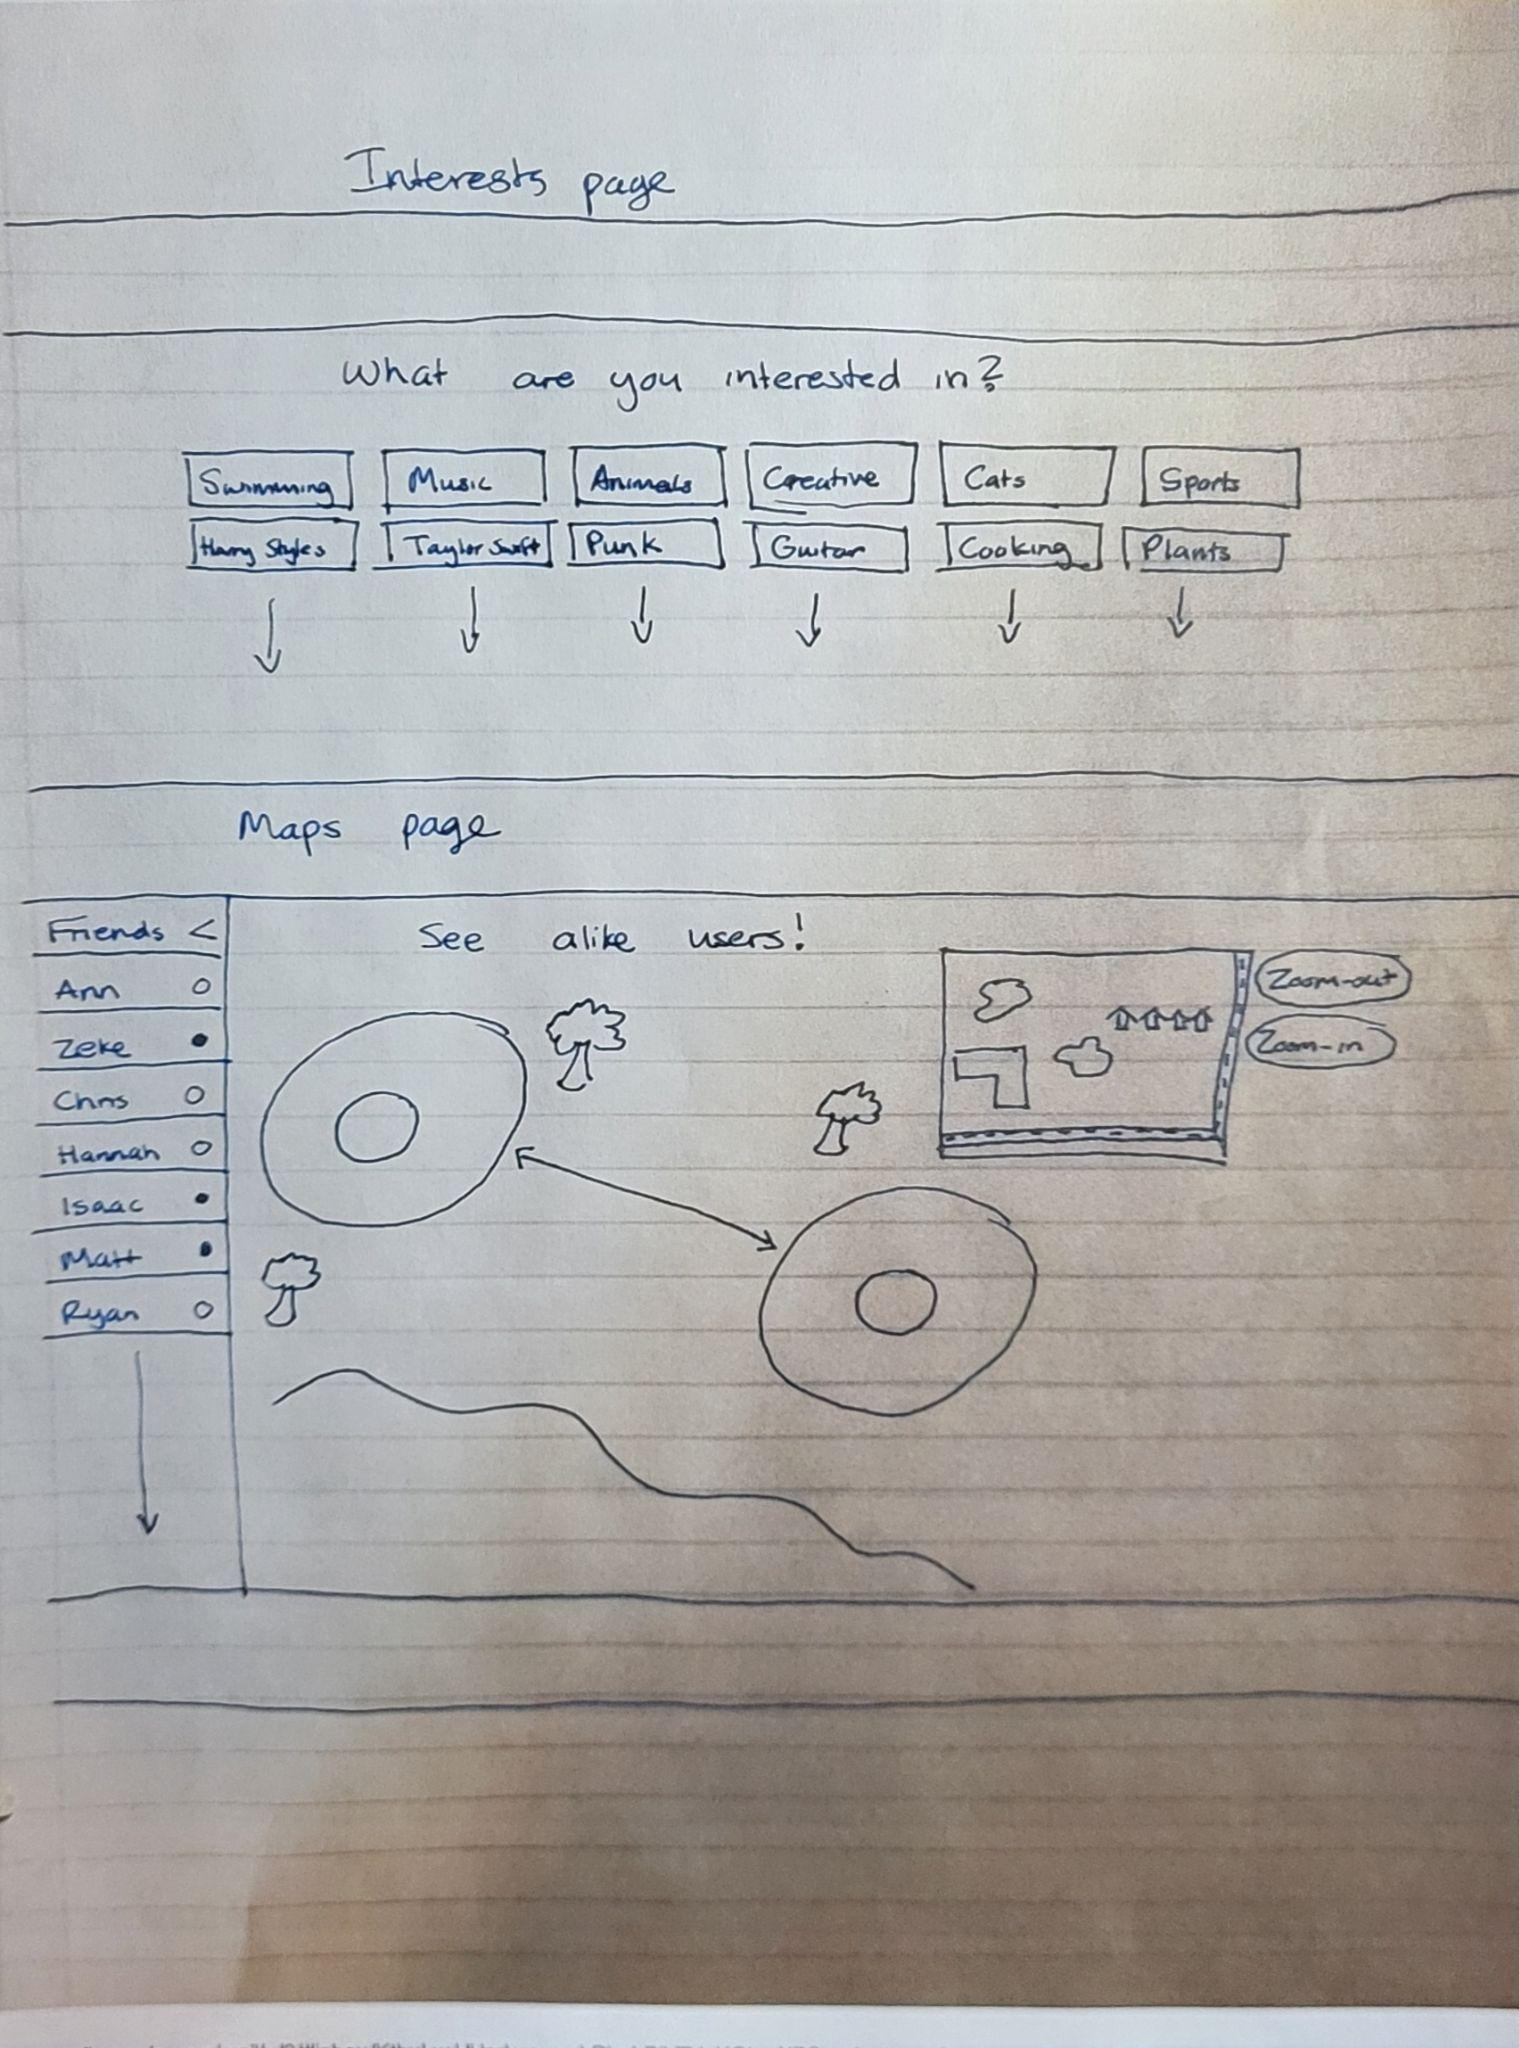 Interests page
What are you interested in?
Swimming Music Animals Creative Cats Sports
Harry Styles Taylor Swift Punk Guitar Cooking Plants
Maps page
Friends <
See alike users!
Ann
Zeke
Chris
Hannah
Isaac
Matt
Ryan
Zoom-out
Zoom-in